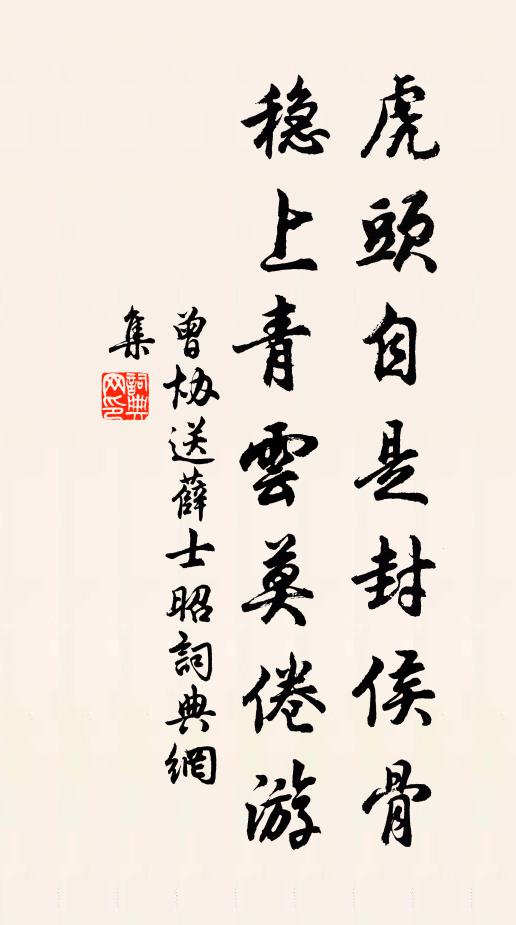 虎頭自是封侯骨
穏上青雲莫倦游
曾协送薛士昭詞典網
集
詞典
网印